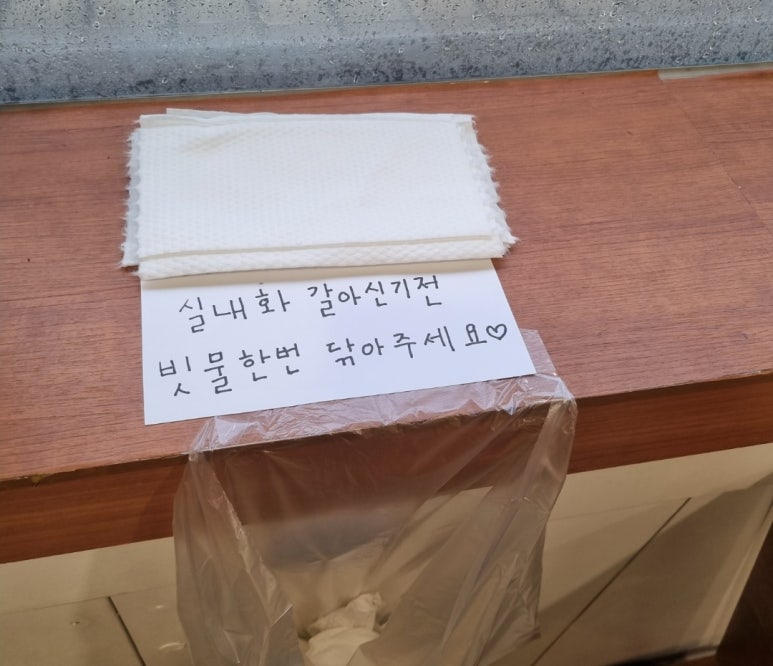 실내화 갈아신기전
빗물한번 닦아주세요♡